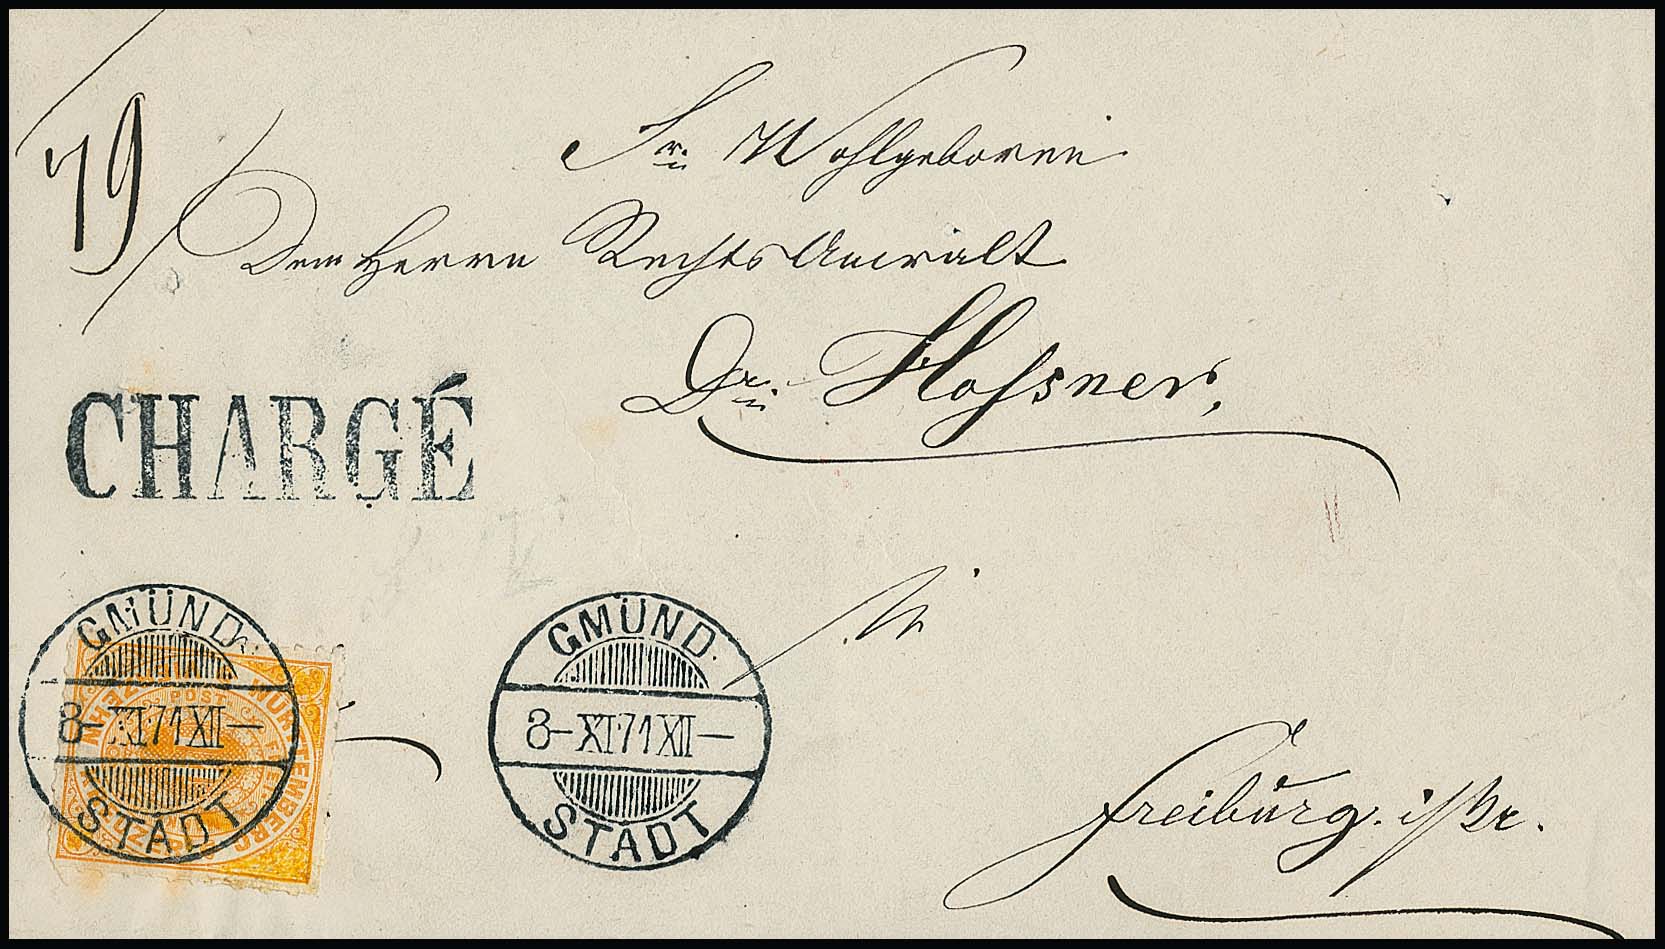 79
Sr. Wohlgeboren
Dem Herrn RechtsAnwalt
Dr. Hofsner,
CHARGÉ
in
GMÜND.
8-XI•71XII-
STADT
GMÜND.
8-XI•71XII-
STADT
POST
WÜRTTEMBERG
Freiburg. i/Br.